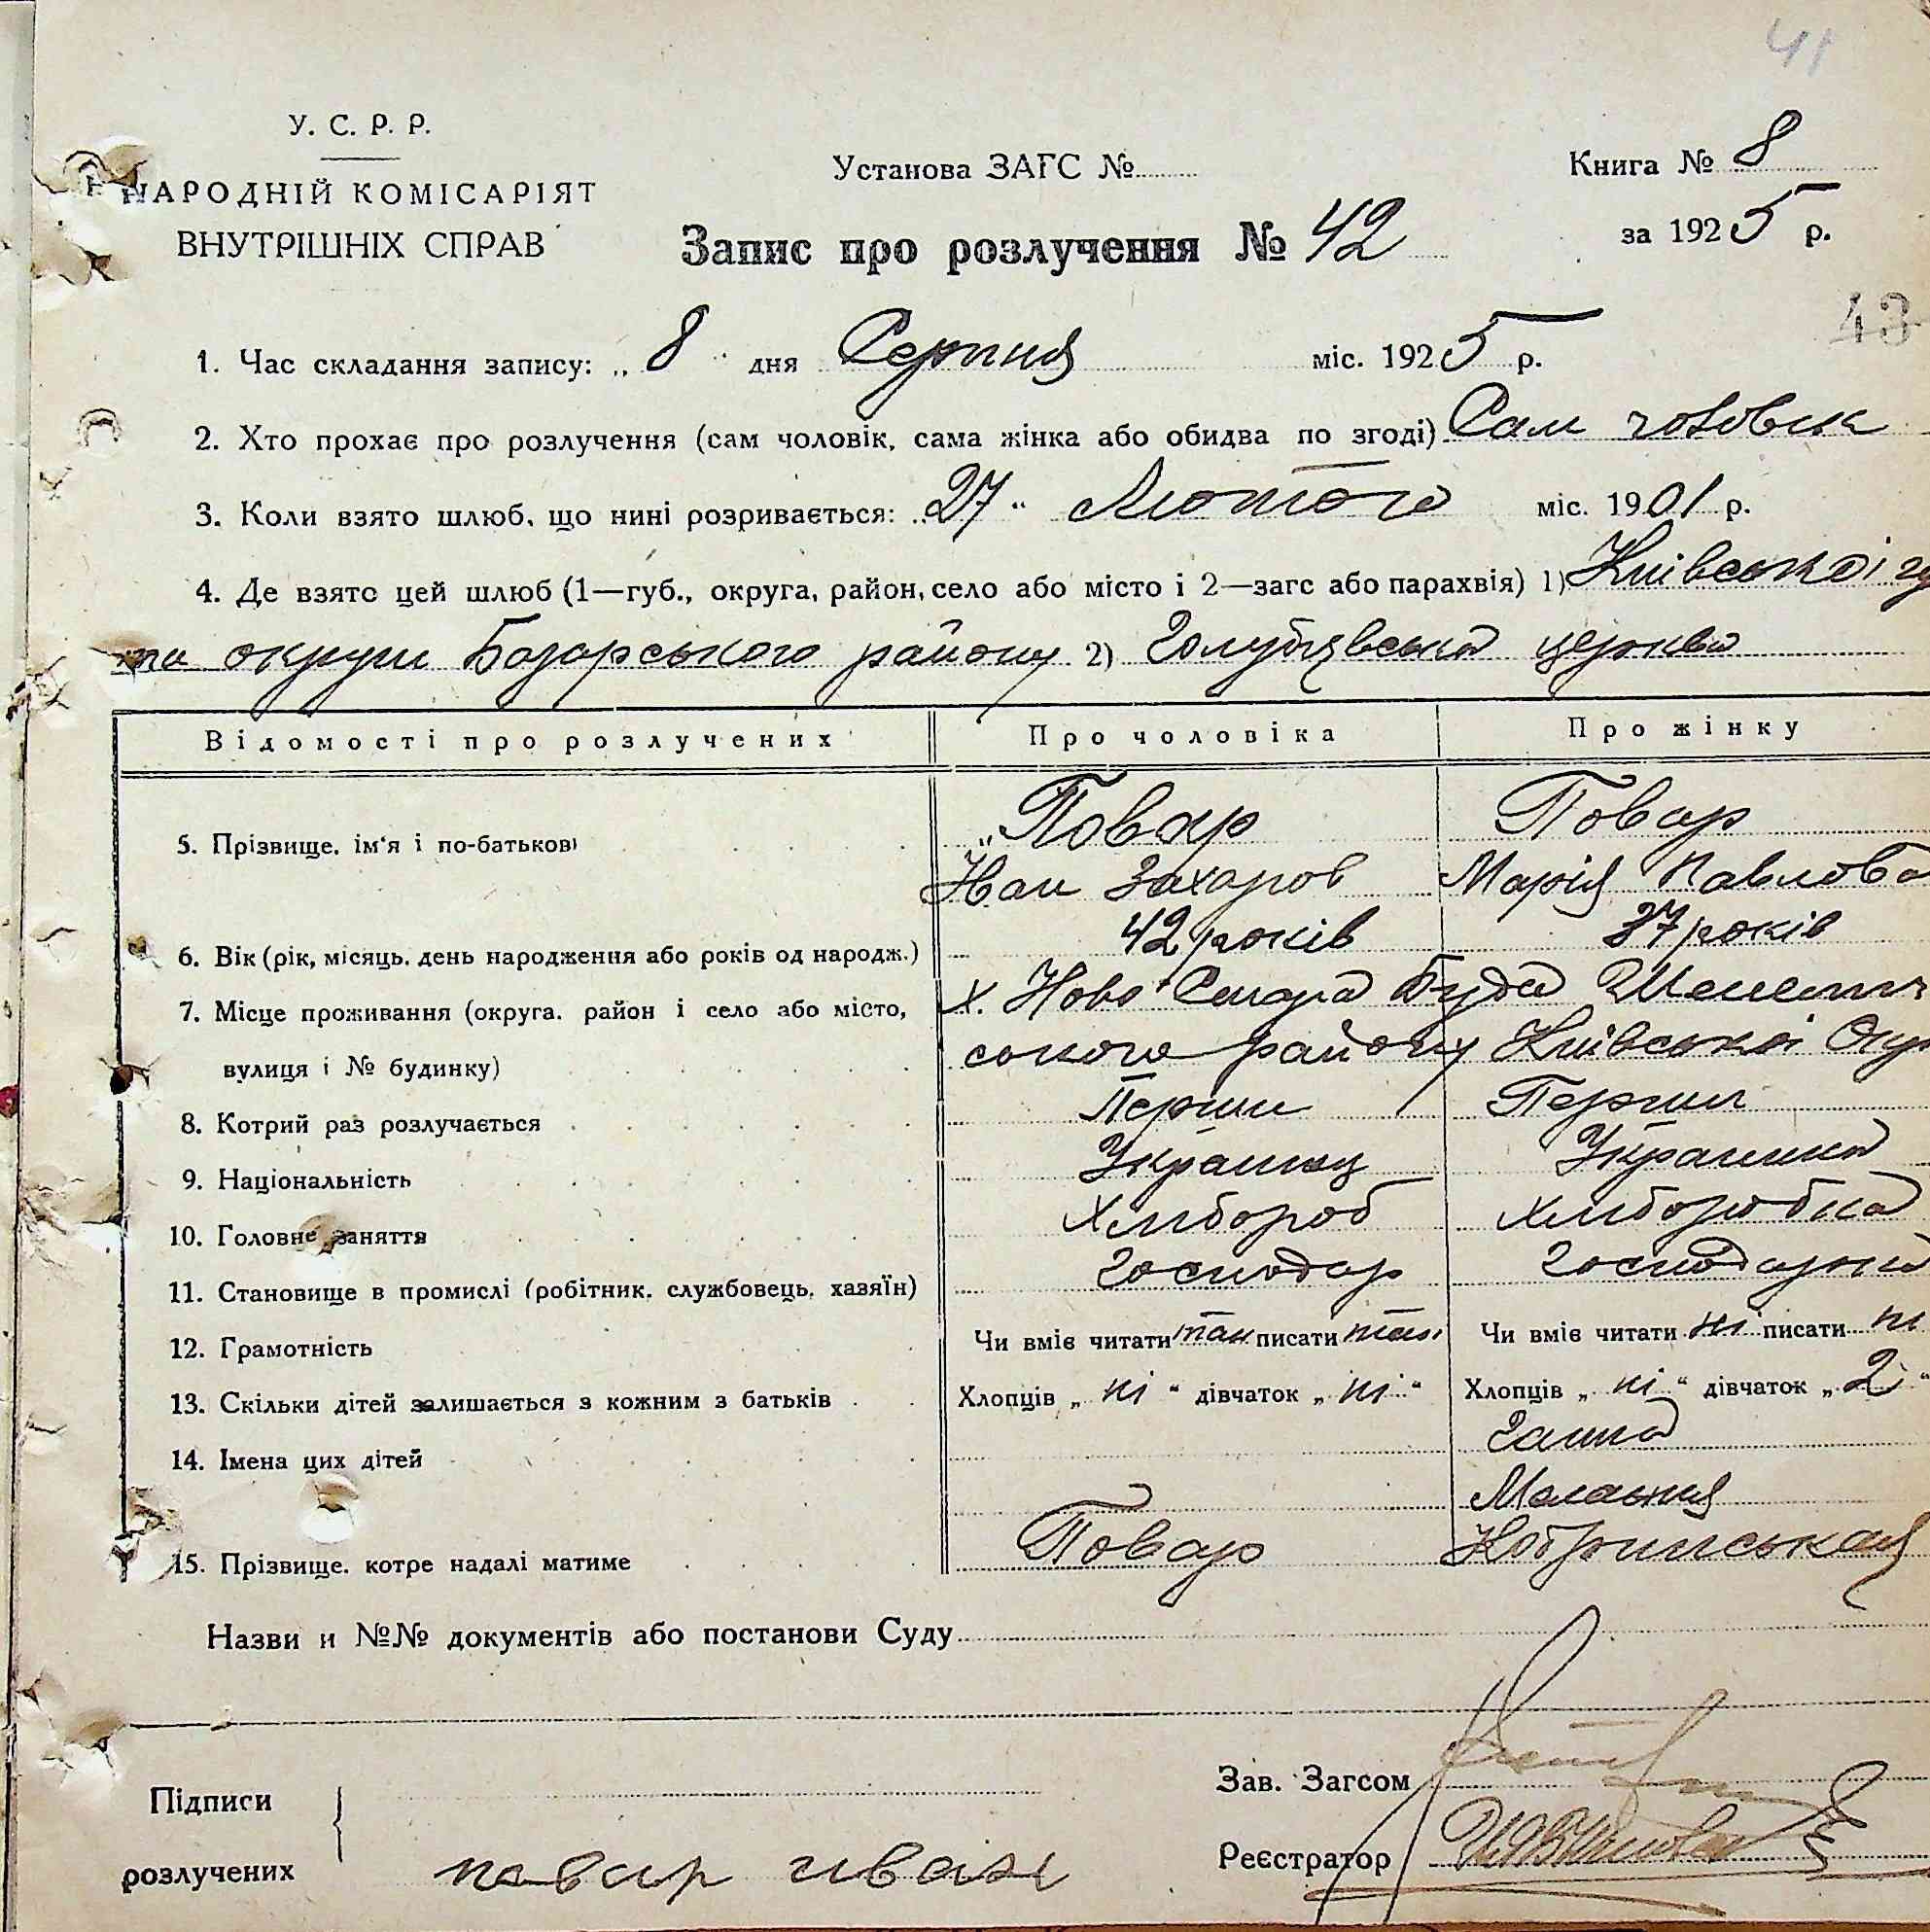 41
У. С. Р. Р.
НАРОДНІЙ КОМІСАРІЯТ
ВНУТРІШНІХ СПРАВ
Установа ЗАГС №
Книга № 8
за 1925 р.
Запис про розлучення № 42
43
1. Час складання запису: „ 8 " дня Серпня міс. 1925 р.
2. Хто прохає про розлучення (сам чоловік, сама жінка або обидва по згоді) Сам чоловік
3. Коли взято шлюб, що нині розривається: „27" Лютого міс. 1901 р.
4. Де взято цей шлюб (1—губ., округа, район, село або місто і 2—загс або парахвія) 1) Київської гу
та округи Базарського району 2) Голубіевська церква
Відомості про розлучених Про чоловіка Про жінку
5. Прізвище, ім'я і по-батькові Повар Повар
Іван Захаров Марія Павлова
6. Вік (рік, місяць, день народження або років од народж.) 42 років 37 років
7. Місце проживання (округа, район і село або місто, х. Ново Стара Буда
вулиця і № будинку) ського району Київської Окр
8. Котрий раз розлучається Перши Перши
9. Національність Украінец Украінка
10. Головне заняття Хлібороб Хліборобка
11. Становище в промислі (робітник, службовець, хазяїн) Господар Господарка
12. Грамотність Чи вміє читати так писати так Чи вміє читати ні писати ні
13. Скільки дітей залишається з кожним з батьків Хлопців „ ні " дівчаток „ ні " Хлопців „ ні " дівчаток „ 2 "
14. Імена цих дітей Ганна
Маланія
15. Прізвище, котре надалі матиме Повар Кобринськая
Назви и №№ документів або постанови Суду
Зав. Загсом
Підписи
розлучених
повар иван
Реєстратор